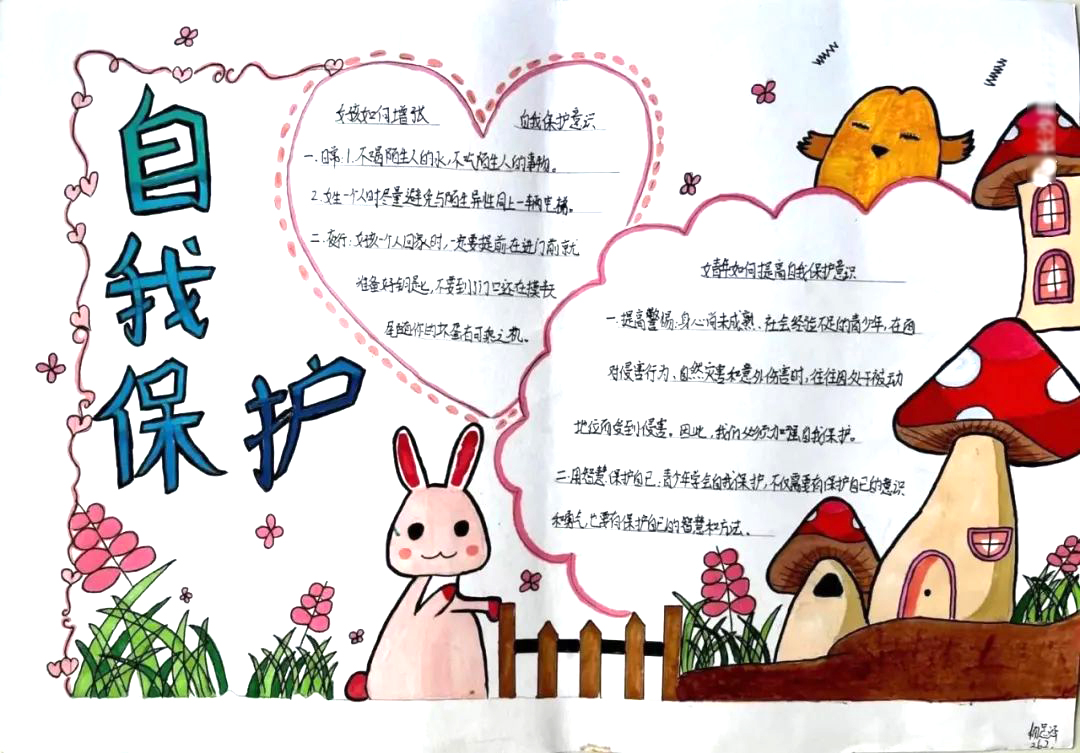 自我保护
女孩如何增张 自我保护意识
一.日常:1.不喝陌生人的水,不吃陌生人的事物。
2.女生一个人时尽量避免与陌生异性同上一辆电梯。
二.夜行:女孩一个人回家时,一定要提前在进门前就
准备好钥匙,不要到了门口还在摸找
尾随你的坏蛋有可乘之机。
女青年如何提高自我保护意识
一.提高警惕:身心尚未成熟、社会经验不足的青少年,在面
对侵害行为、自然灾害和意外伤害时,往往因处于被动
地位而受到侵害。因此,我们必须加强自我保护。
二.用智慧保护自己:青少年学会自我保护,不仅需要有保护自己的意识
和勇气,也要有保护自己的智慧和方法。